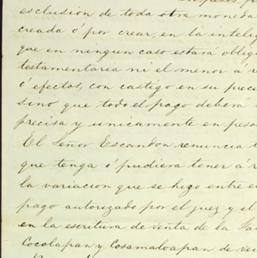 esclusion de toda otra moneda
creada ó por crear en la intelig
que en ningun caso estará oblig
testamentaria ni el menor á r
ó efectos, con castigo en su prec
sino que todo el pago deberá
precisa y unicamente en pesos
El Señor Escandon renuncia t
que tenga ó pudiera tener á r
la variacion que se hizo entre e
pago autorizado por el juez y el
en la escritura de venta de la
Cocolapan y Cosamaloapan de